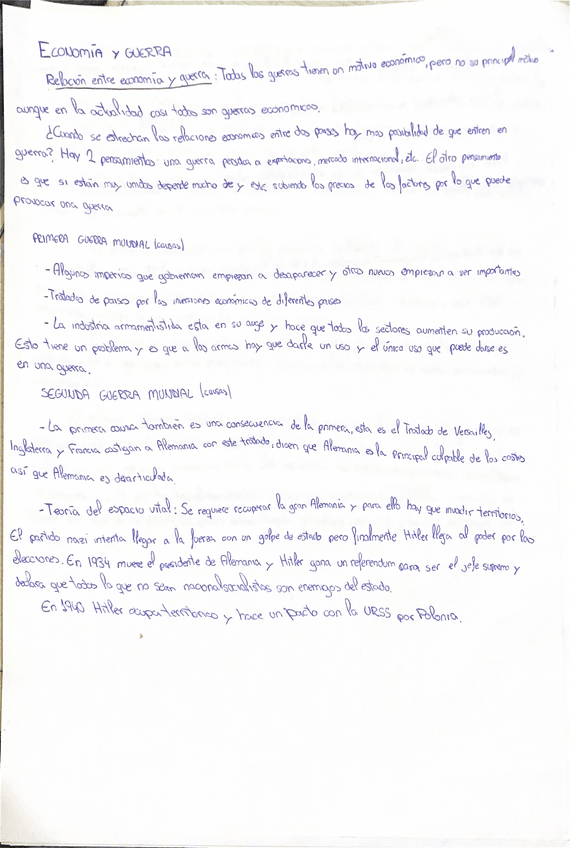 ECONOMÍA Y GUERRA
Relación entre economía y guerra: Todas las guerras tienen un motivo económico, pero no su principal motivo
aunque en la actualidad casi todas son guerras economicas.
¿Cuanto se estrechan las relaciones economicas entre dos paises hay mas posibilidad de que entren en
guerra? Hay 2 pensamientos: una guerra perjudica a exportaciones, mercado internacional, etc. El otro pensamiento
es que si están muy unidos depende mucho de y este subiendo los precios de los factores por lo que puede
provocar una guerra
PRIMERA GUERRA MUNDIAL (causas)
-Algunos imperios que gobiernan empiezan a desaparecer y otros nuevos empiezan a ser importantes
-Tratados de paises por las inversiones económicas de diferentes paises
- La industria armamentistica esta en su auge y hace que todos los sectores aumenten su producción.
Esto tiene un problema y es que a las armas hay que darle un uso y el único uso que puede darse es
en una guerra.
SEGUNDA GUERRA MUNDIAL (causas)
-La primera causa también es una consecuencia de la primera, esta es el Tratado de Versalles,
Inglaterra y Francia castigan a Alemania con este tratado, dicen que Alemania es la principal culpable de los costes
así que Alemania es desarticulada.
-Teoría del espacio vital: Se requiere recuperar la gran Alemania y para ello hay que invadir territorios.
El partido nazi intenta llegar a la fuerza con un golpe de estado pero finalmente Hitler llega al poder por las
elecciones. En 1934 muere el presidente de Alemania y Hitler gana un referendum para ser el jefe supremo y
declara que todos lo que no sean nacionalsocialistas son enemigos del estado.
En 1940 Hitler ocupa territorios y hace un pacto con la URSS por Polonia.